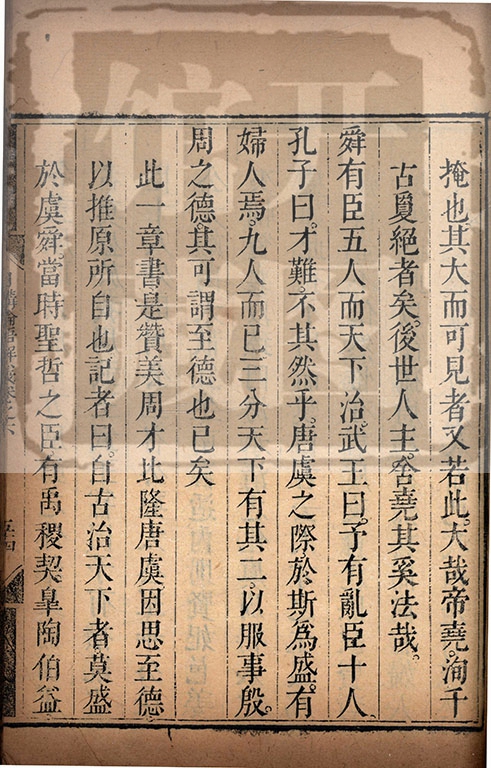 掩也其大而可見者又若此。大哉帝堯。洵千
古夐絕者矣。後世人主。舍堯其奚法哉。
舜有臣五人而天下治。武王曰。予有亂臣十人
孔子曰。才難。不其然乎。唐虞之際。於斯爲盛。有
婦人焉。九人而已三分天下有其二。以服事殷。
周之德。其可謂至德也已矣
此一章書是贊美周才比隆唐虞因思至德
以推原所自也記者曰。自古治天下者。莫盛
於虞舜。當時聖哲之臣。有禹稷契。皐陶伯益